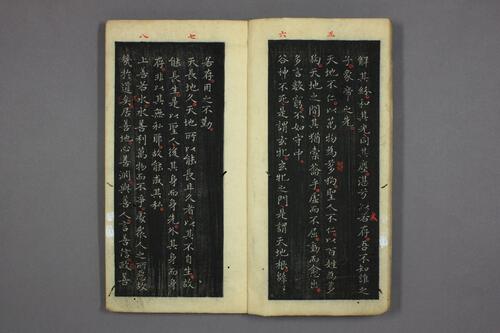 五
六
解其紛和其光同其塵湛兮似若存吾不知誰之
子象帝之先
天地不仁以萬物為芻狗聖人不仁以百姓為芻
狗天地之間其猶橐籥乎虛而不屈動而愈出
多言數窮不如守中
谷神不死是謂玄牝玄牝之門是謂天地根綿綿
七
八
若存用之不勤
天長地久天地所以能長且久者以其不自生故
能長生是以聖人後其身而身先外其身而身
存非以其無私耶故能成其私
上善若水水善利萬物而不爭處衆人之所惡故
幾於道矣居善地心善淵與善人言善信政善